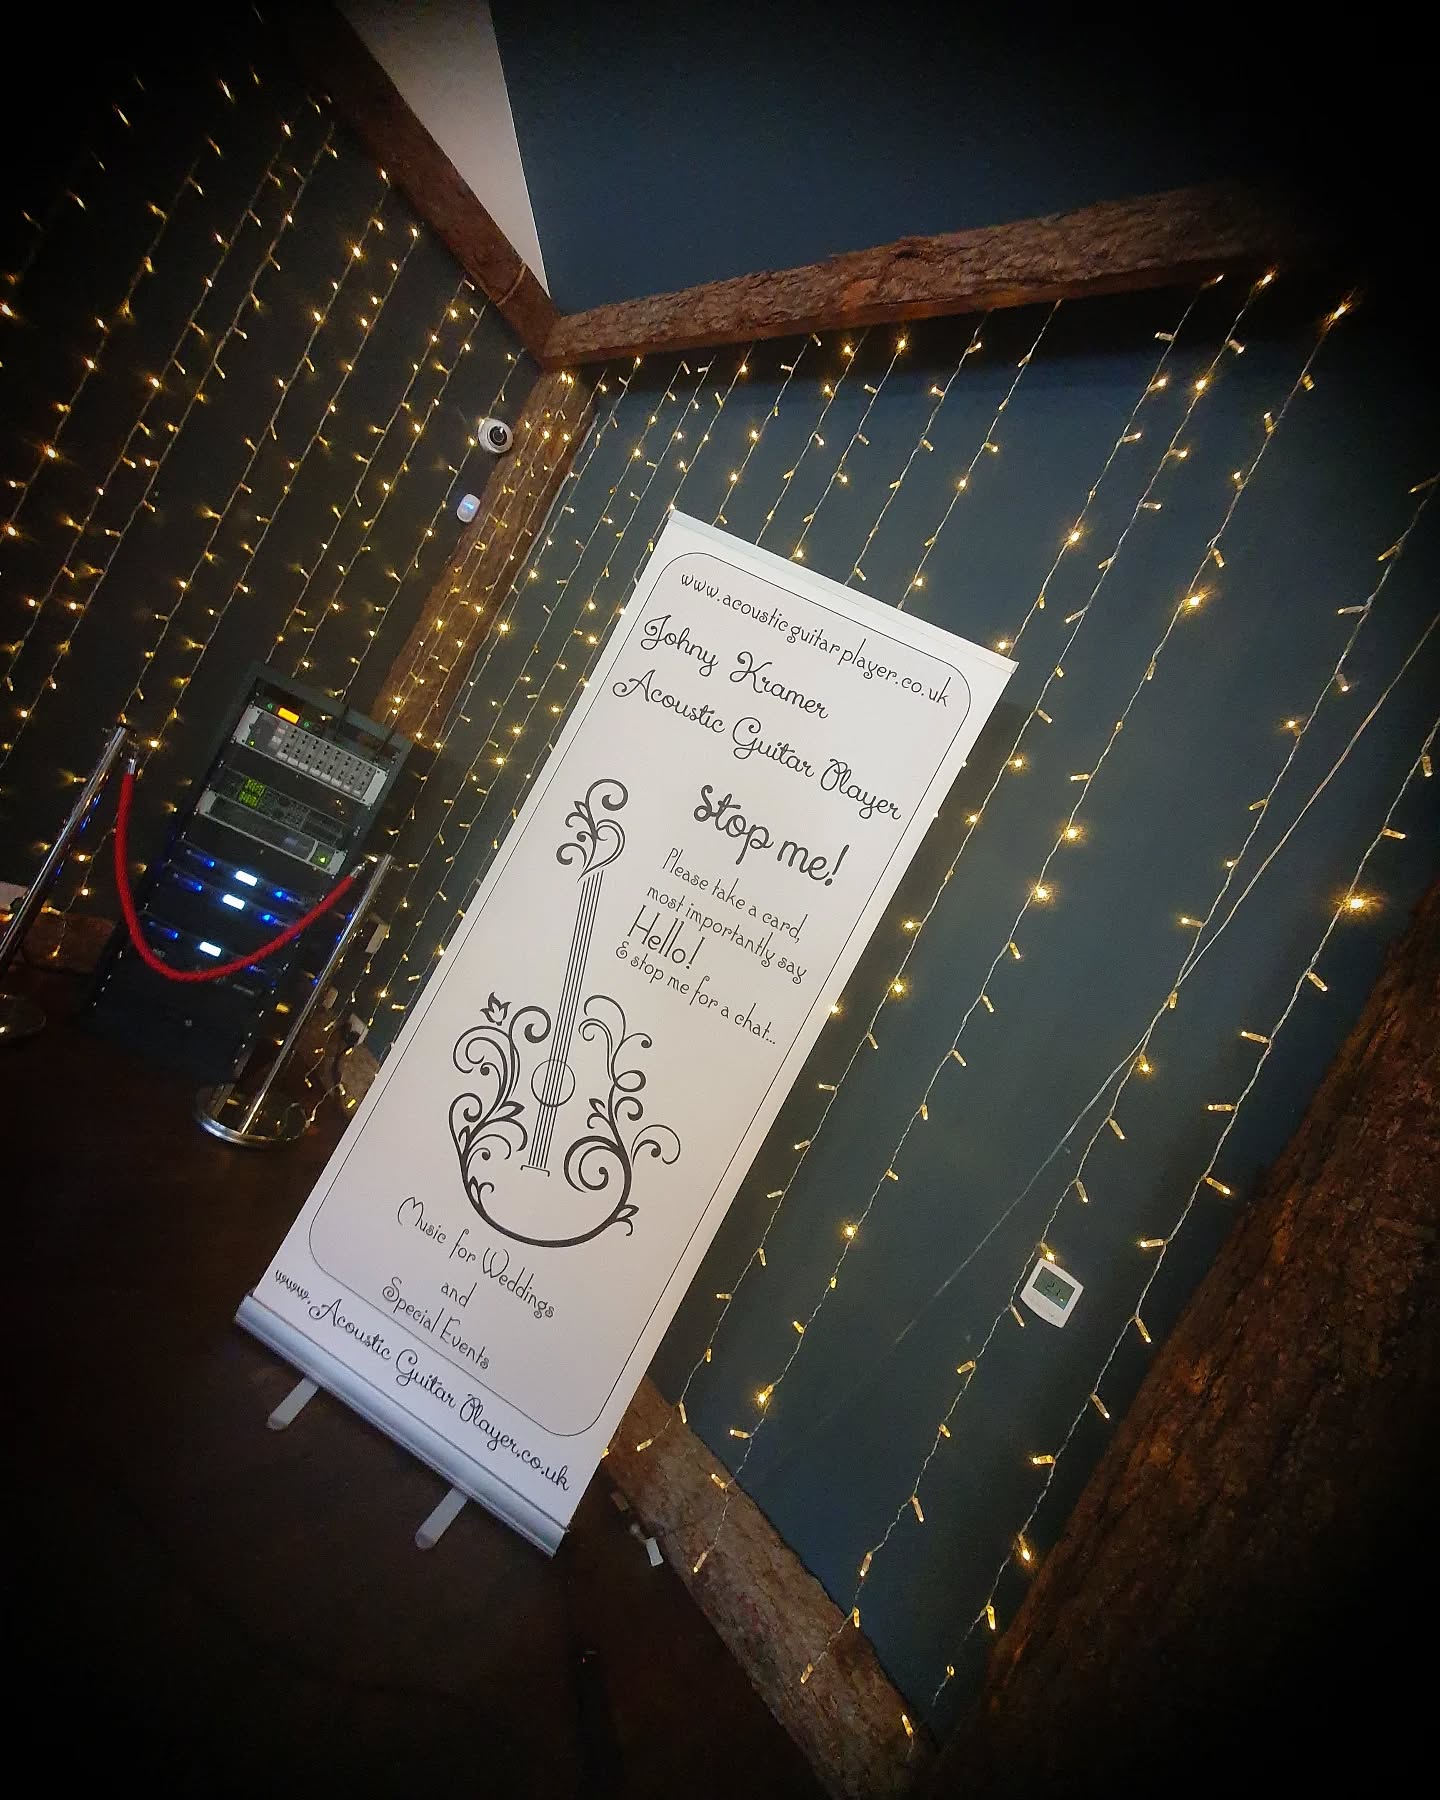 www.acousticguitarplayer.co.uk
Johny Kramer
Acoustic Guitar Player
Stop me!
Please take a card,
most importantly say
Hello!
& stop me for a chat...
Music for Weddings
and
Special Events
www.AcousticGuitarPlayer.co.uk